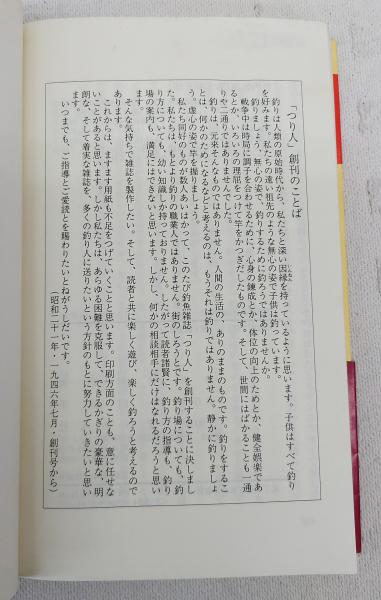 「つり人」創刊のことば
釣りは人類の原始時代から、私たちと深い因縁を持っているように思います。子供はすべて釣り
を好みます。私たちの遠い祖先のような無心の姿で子供は釣っています。
釣りましょう、無心の姿で。釣りするために釣ろうではありませんか。
戦争中は時局に調子を合わせるために、心身の錬成とか、体位の向上のためとか、健全娯楽であ
るとか、いろいろの理屈をつけて竿をかつぎだしたものです。そして、世間にはばかることも一通
りや二通りではありませんでした。
釣りは、元来そんなものではありません。人間の生活の、ありのままのものです。釣りをするこ
とは、何かのためになるなどと考えるのは、もうそれは釣りではありません。静かに釣りましょ
う。虚心の姿で竿を握りましょう。
私たち同好のものが数人あいはかって、このたび釣魚雑誌『つり人』を創刊することに決しまし
た。私たちは、もとより釣りの職業人ではありません。街のしろうとです。釣り場についても、釣
り方についても、幼い知識しか持っておりません。したがって読者諸賢に、釣り方の指導も、釣り
場の案内も、満足にはできないと思います。しかし、何かの相談相手にだけはなれるだろうと思い
ます。
そんな気持ちで雑誌を製作したい。そして、読者と共に楽しく遊び、楽しく釣ろうと考えるので
あります。
これからは、ますます用紙も不足をつげていくことと思います。印刷方面のことも、意に任せな
いことがあると思います。しかし私たちは、あらゆる困難を克服して、できるかぎりの豪華な、明
朗な、そして着実な雑誌を、多くの釣り人に送りたいという方針のもとに努力していきたいと思い
ます。
いつまでも、ご指導とご愛読とを賜わりたいとねがうしだいです。
（昭和二十一年・一九四六年七月・創刊号から）